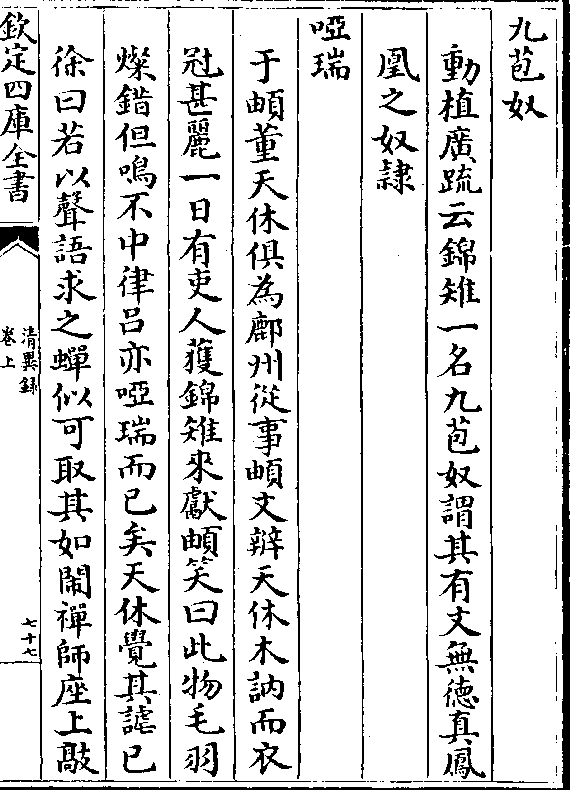 九苞奴
動植廣疏云錦雉一名九苞奴謂其有文無德真鳳
凰之奴隷
啞瑞
于頔董天休俱為鄜州從事頔文辨天休木訥而衣
冠甚麗一日有吏人獲錦雉來獻頔笑曰此物毛羽
燦錯但鳴不中律吕亦啞瑞而已矣天休覺其謔已
徐曰若以聲語求之蟬似可取其如閙禪師座上敲
欽定四庫全書
清異録
卷上
七十七